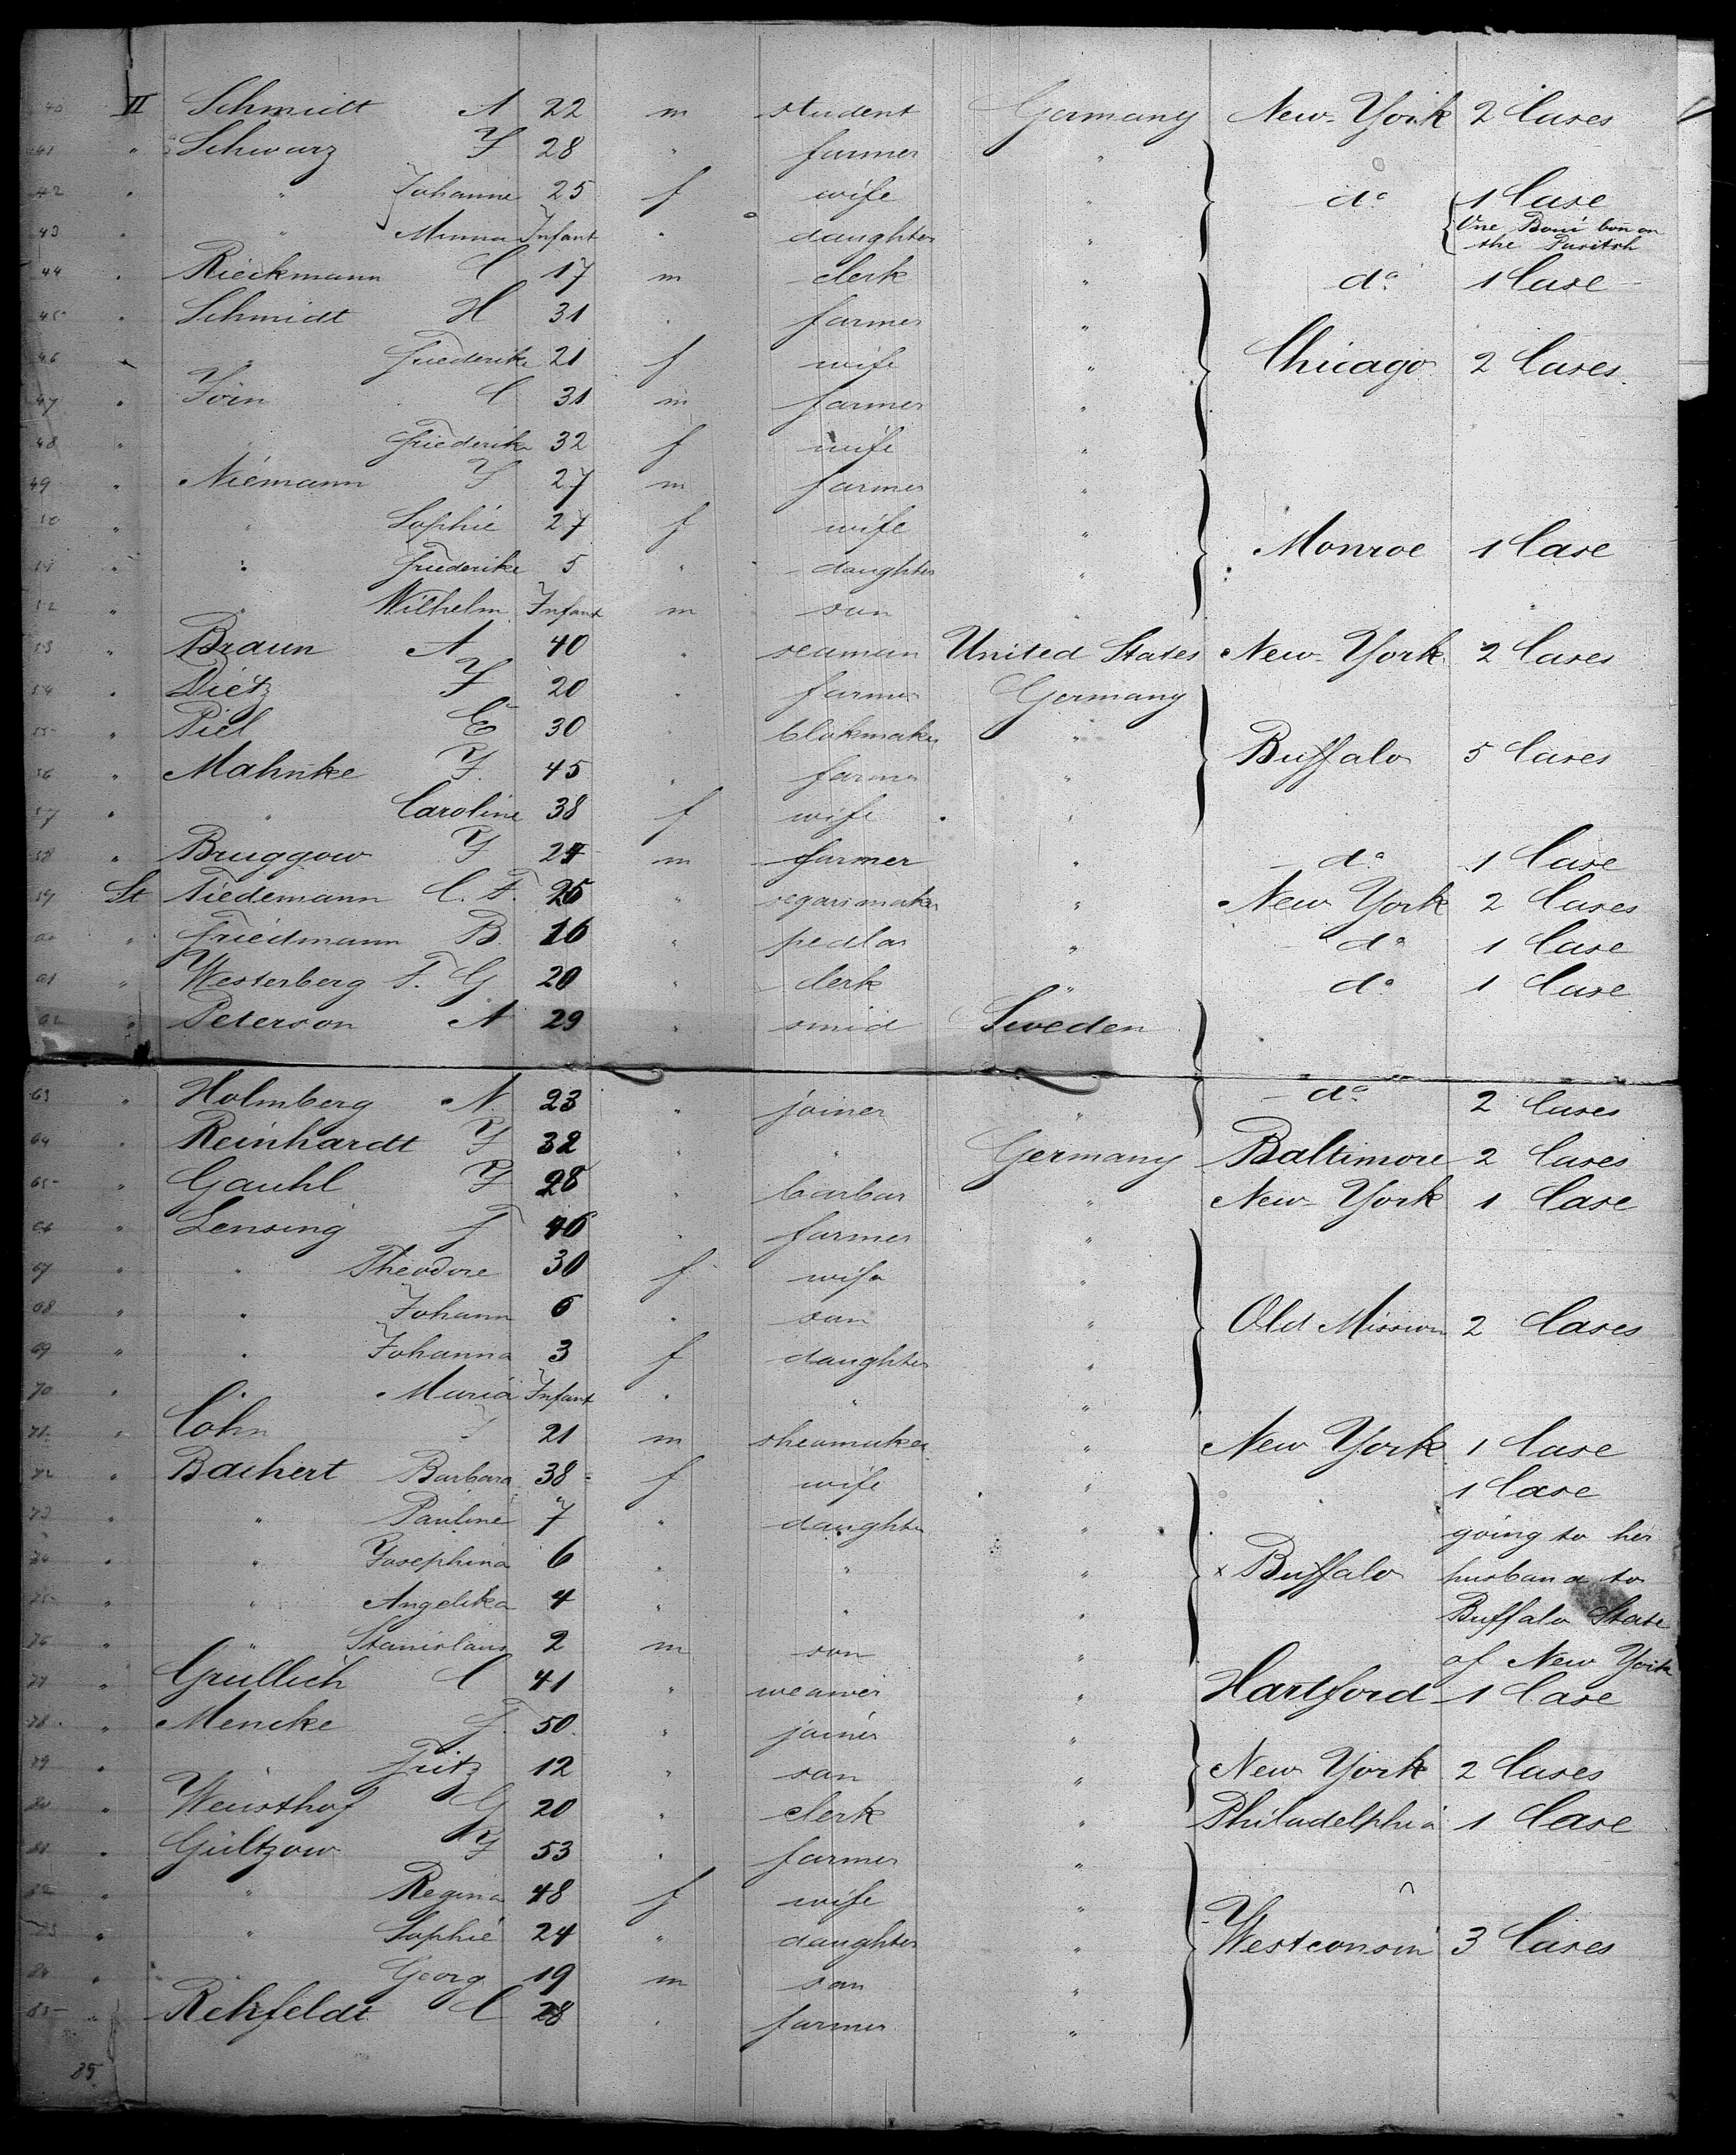 40 II Schmidt A 22 m student Germany New-York 2 Cases
41 " Schwarz J 28 " farmer "
42 " " Johanne 25 f wife " do 1 Case
43 " " Minna Infant " daughter " One
the
44 " Rieckmann C 17 m clerk " do 1 Case
45 " Schmidt H 31 " farmer "
46 " " Friederike 21 f wife " Chicago 2 Cases
47 " Join C 31 m farmer "
48 " " Friederike 32 f wife "
49 " Niemann J 27 m farmer "
50 " " Sophie 27 f wife "
51 " " Friederike 5 " daughter " Monroe 1 Case
52 " " Wilhelm Infant m son "
53 " Braun A 40 " seaman United States New-York 2 Cases
54 " Dietz J 20 " farmer Germany
55 " Piel E 30 " blokmaker " Buffalo 5 Cases
56 " Mahnke J 45 " farmer "
57 " " Caroline 38 f wife "
58 " Bruggow J 24 m farmer " do 1 Case
59 St Tiedemann C. F. 26 " segarsmaker " New York 2 Cases
60 " Friedmann B 16 " pedlar " do 1 Case
61 " Westerberg F. G 20 " clerk " do 1 Case
62 " Peterson A 29 " smid Sweden
63 " Holmberg N 23 " joiner " do 2 Cases
64 " Reinhardt J 32 " " Germany Baltimore 2 Cases
65 " Gauhl J 28 " barbar " New-York 1 Case
66 " Lensing F 46 " farmer "
67 " " Theodore 30 f wife "
68 " " Johann 6 " son " Old Mission 2 Cases
69 " " Johanna 3 f daughter "
70 " " Maria Infant " " "
71 " Cohn J 21 m shoemaker " New York 1 Case
72 " Bachert Barbara 38 f wife " 1 Case
73 " " Pauline 7 " daughter " going to her
74 " " Josephina 6 " " " x Buffalo husband to
75 " " Angelika 4 " " " Buffalo State
76 " " Stanislaus 2 m son " of New York
77 " Grullich C 41 " weawer " Hartford 1 Case
78 " Mencke F. 50 " joiner "
79 " " Fritz 12 " son " New York 2 Cases
80 " Weusthof G 20 " clerk " Philadelphia 1 Case
81 " Gültzow J 53 " farmer "
82 " " Regina 48 f wife "
83 " " Sophie 24 " daughter " Westconsin 3 Cases
84 " " Georg 19 m son "
85 " Rehfeldt C 28 " farmer "
85